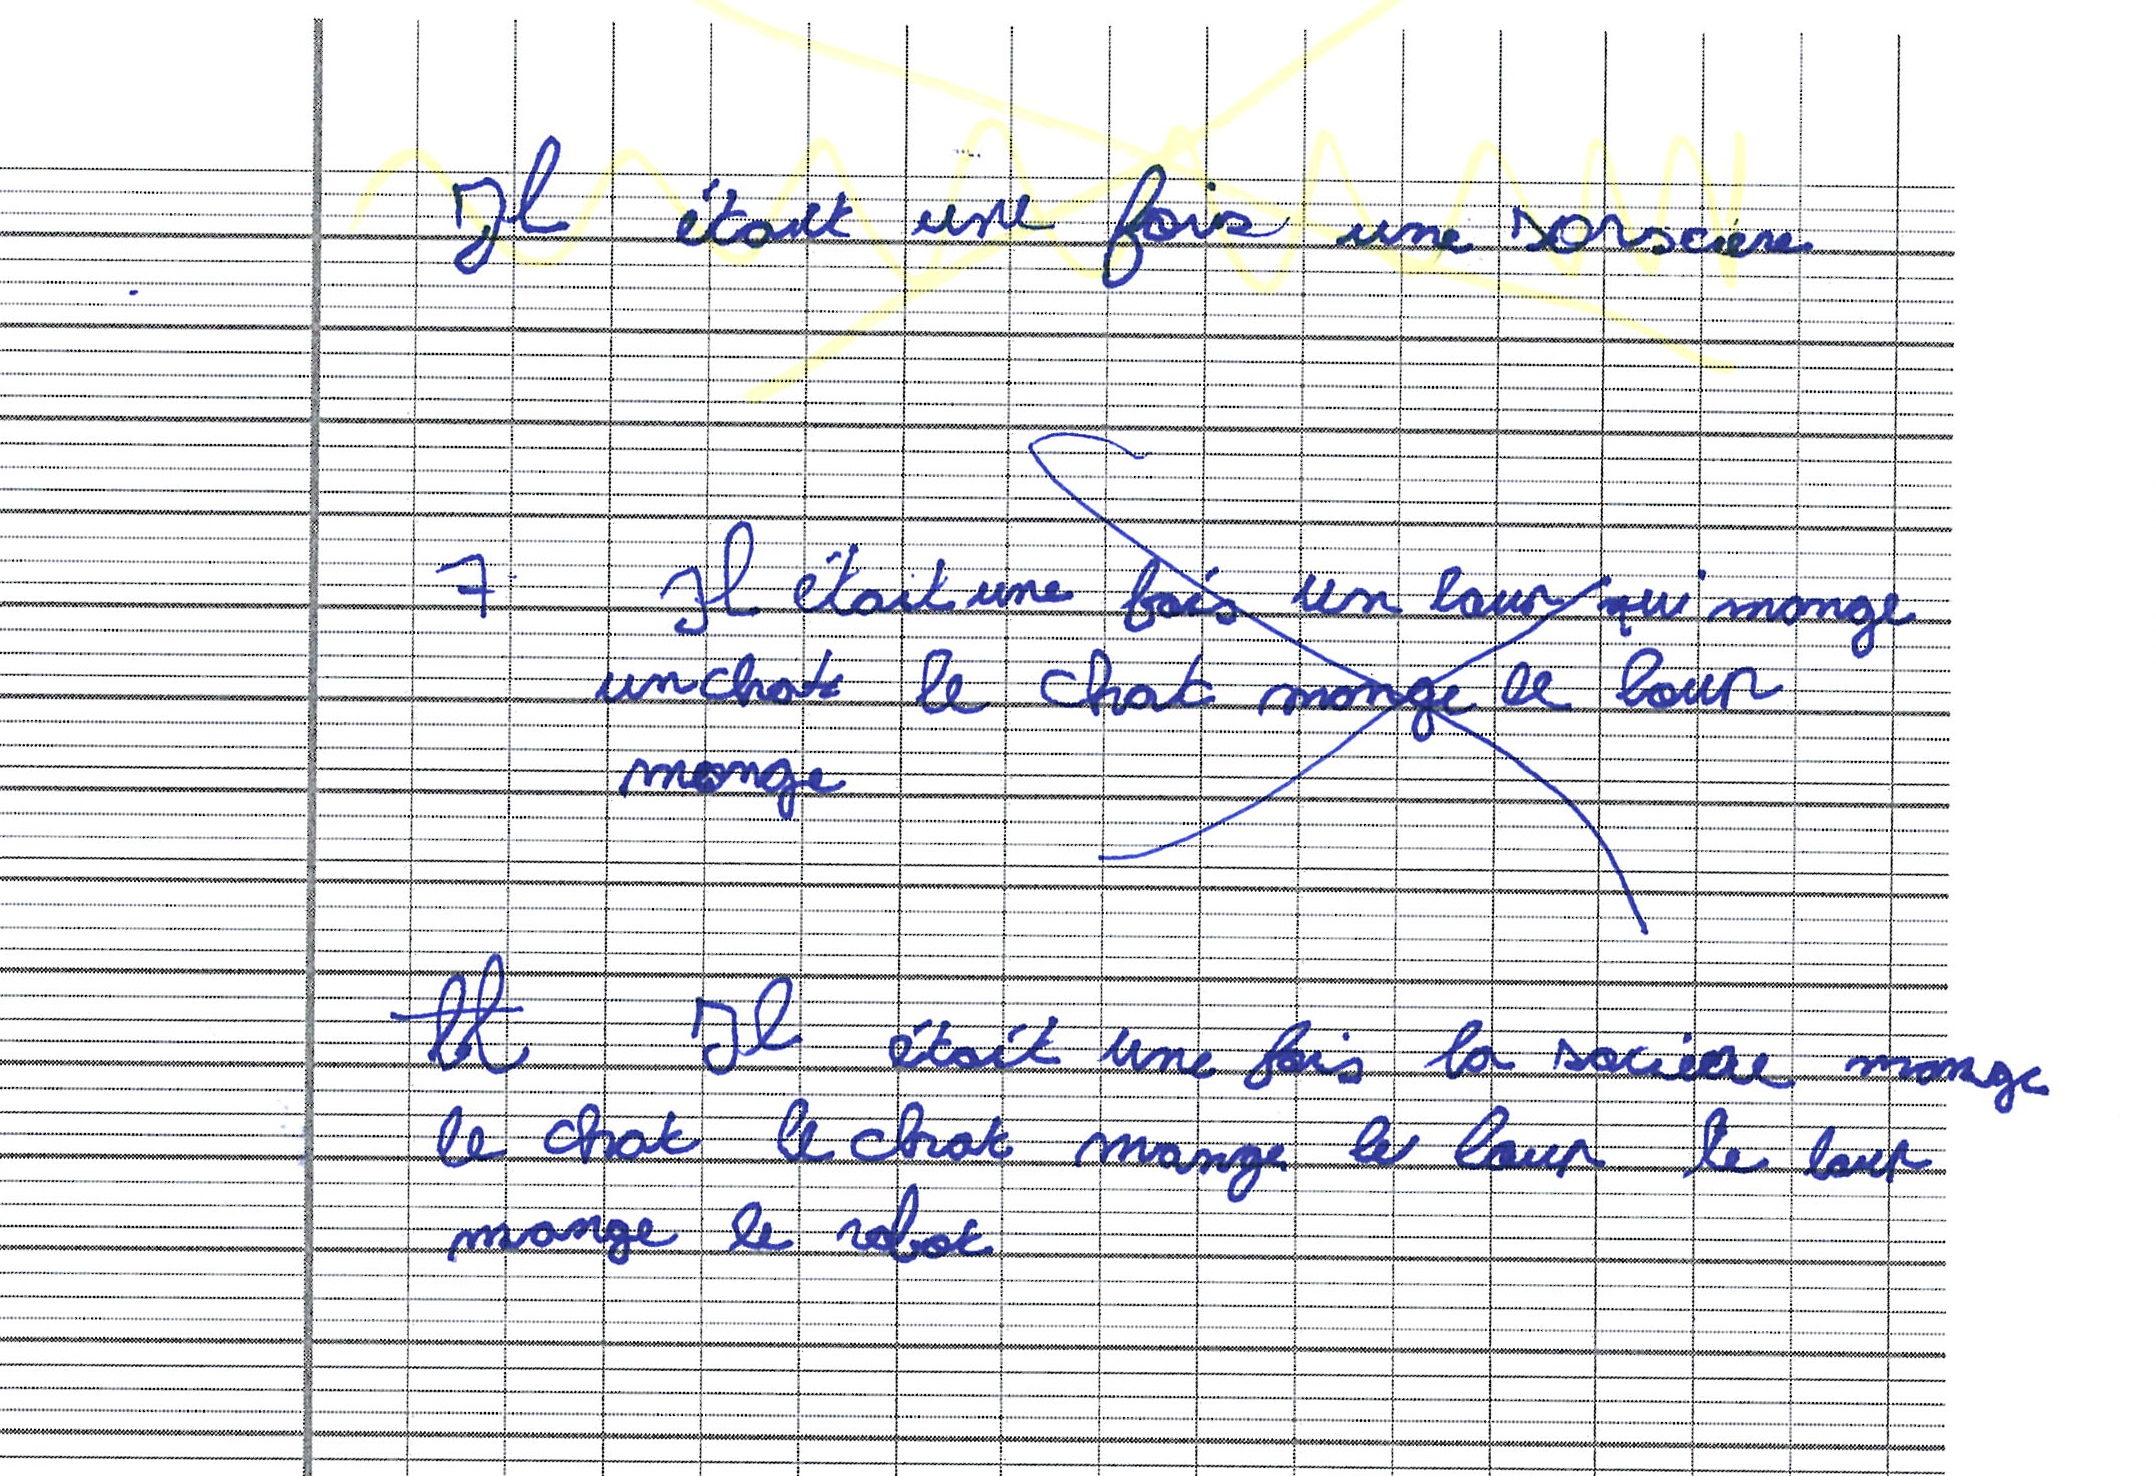 Il était une fois une sorscière
7 Il était une fois un loup qui mange
un chat le chat mange le loup
mange
Il était une fois la socière mange
le chat le chat mange le loup le loup
mange le robot